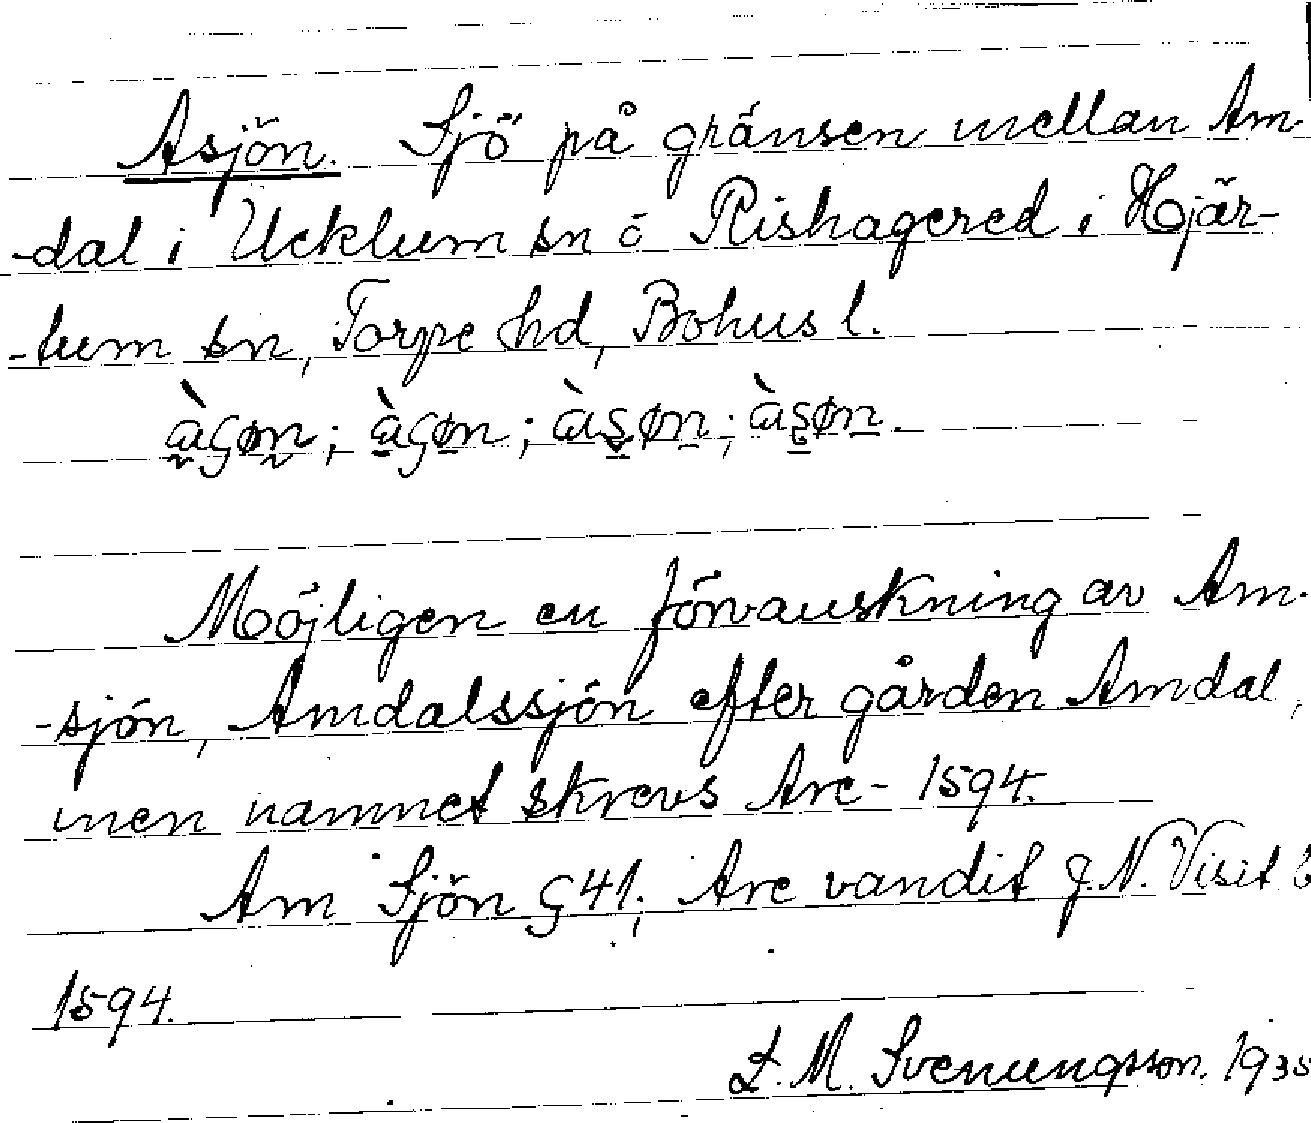 Asjön. Sjö på gränsen mellan Am-
-dal i Ucklum sn o Rishagered i Hjär-
-tum sn, Torpe hd, Bohus l.
Möjligen en förvanskning av Am-
-sjön, Amdalssjön efter gården Amdal,
men namnet skrevs Are- 1594.
Am Sjön G 41; Are vandit J.N. Visit b
1594.
L. M. Svenungsson. 1935